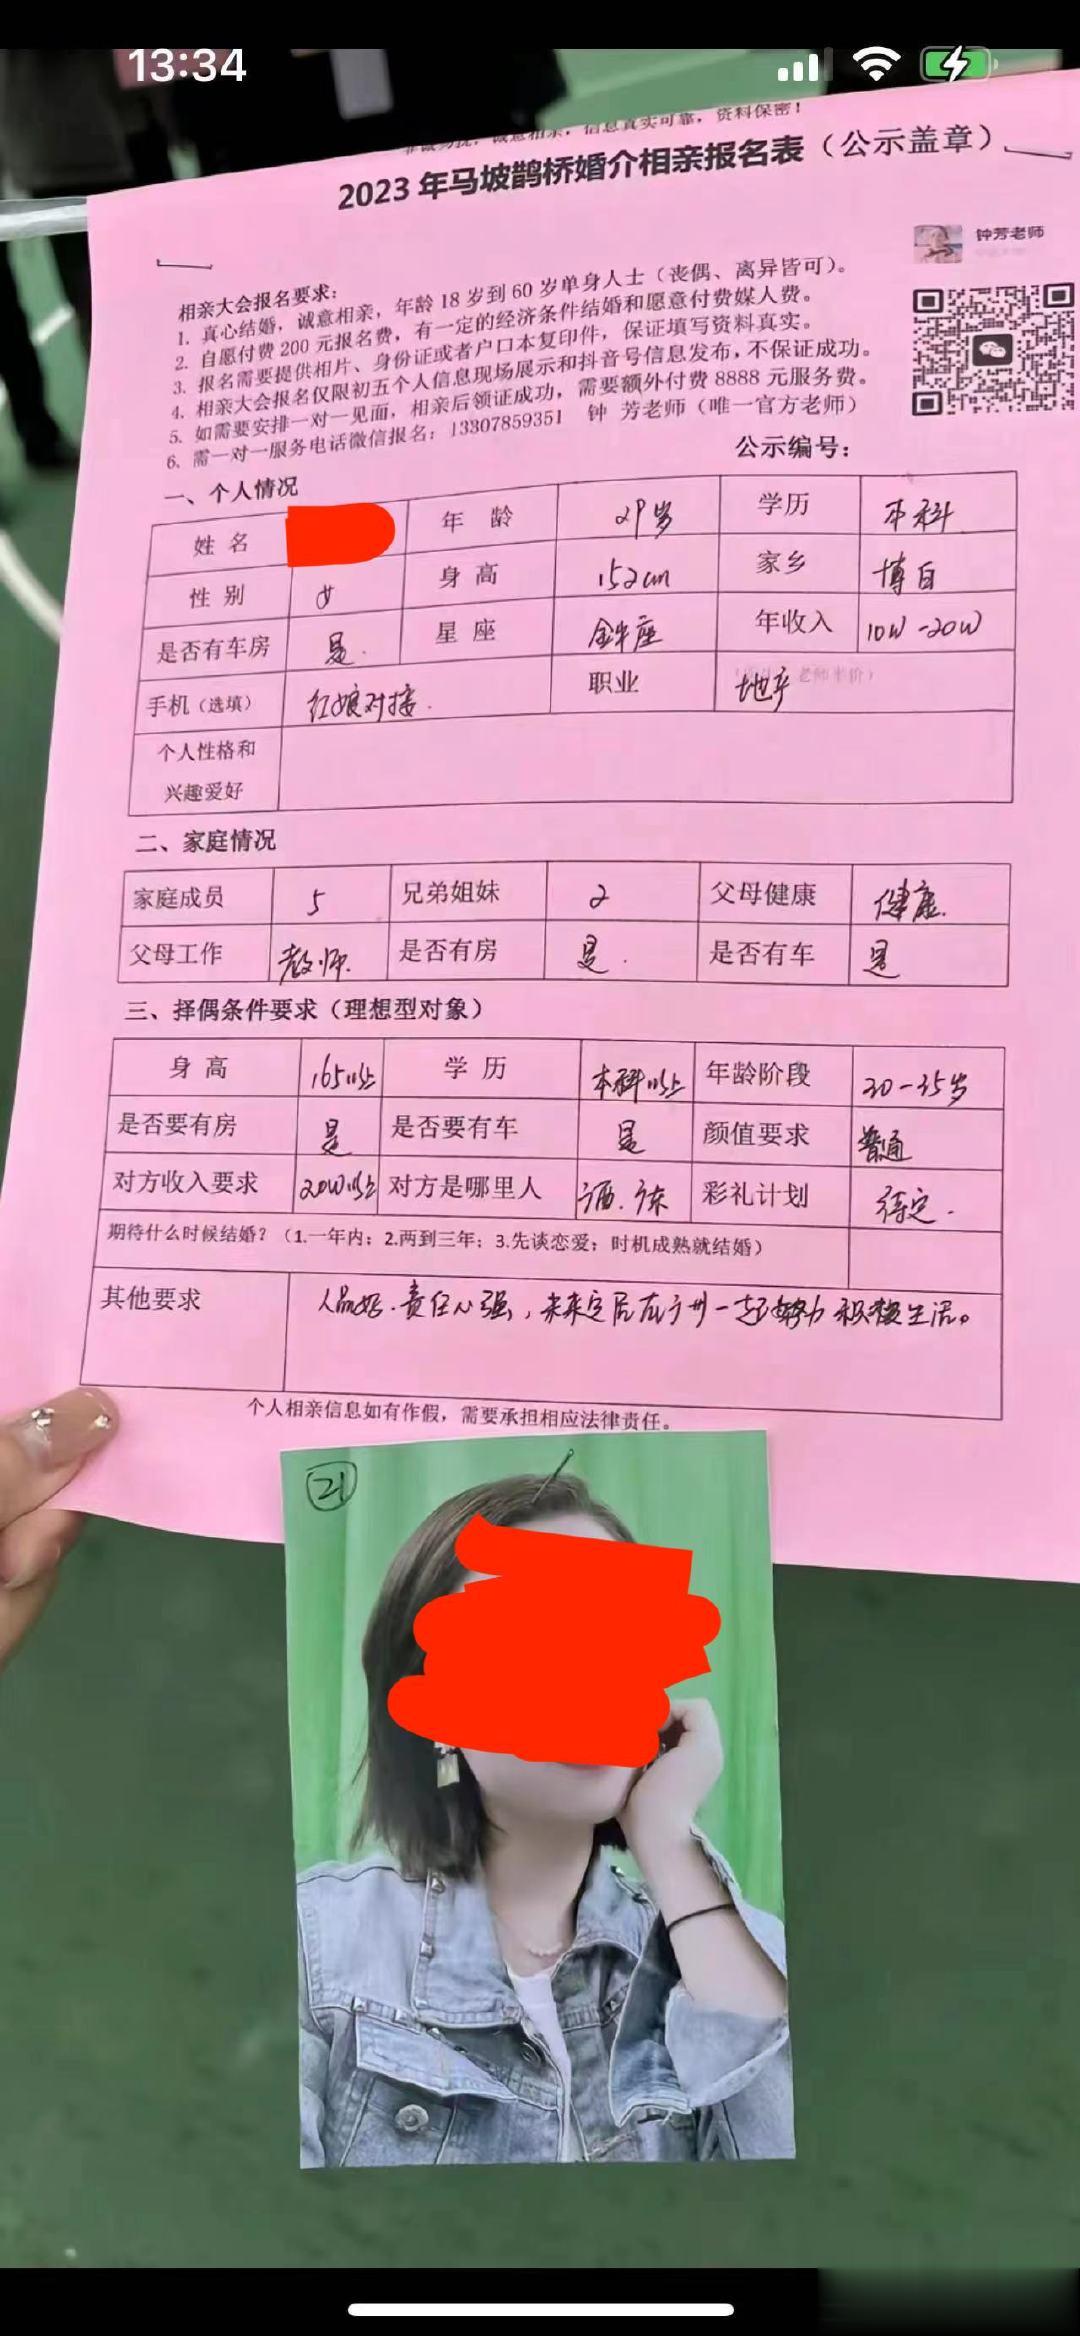 13:34
非诚勿扰，诚意相亲，信息真实可靠，资料保密！
2023 年马坡鹊桥婚介相亲报名表（公示盖章）
钟芳老师
相亲大会报名要求：
1. 真心结婚，诚意相亲，年龄 18 岁到 60 岁单身人士（丧偶、离异皆可）。
2. 自愿付费 200 元报名费，有一定的经济条件结婚和愿意付费媒人费。
3. 报名需要提供相片、身份证或者户口本复印件，保证填写资料真实。
4. 相亲大会报名仅限初五个人信息现场展示和抖音号信息发布，不保证成功。
5. 如需要安排一对一见面，相亲后领证成功，需要额外付费 8888 元服务费。
6. 需一对一服务电话微信报名：13307859351 钟 芳老师（唯一官方老师）
公示编号：
一、个人情况
姓 名 年 龄 29岁 学历 本科
性 别 女 身 高 152cm 家乡 博白
是否有车房 是. 星 座 金牛座 年收入 10W-20W
手机（选填） 红娘对接. 职业 地产 老师半价）
个人性格和
兴趣爱好
二、家庭情况
家庭成员 5 兄弟姐妹 2 父母健康 健康.
父母工作 教师. 是否有房 是. 是否有车 是
三、择偶条件要求（理想型对象）
身 高 165以上 学 历 本科以上 年龄阶段 30-35岁
是否要有房 是 是否要有车 是 颜值要求 普通
对方收入要求 20W以上 对方是哪里人 广西.广东 彩礼计划 待定.
期待什么时候结婚？（1.一年内；2.两到三年；3.先谈恋爱；时机成熟就结婚）
其他要求 人品好.责任心强，未来定居在广州一起努力积极生活。
个人相亲信息如有作假，需要承担相应法律责任。
21